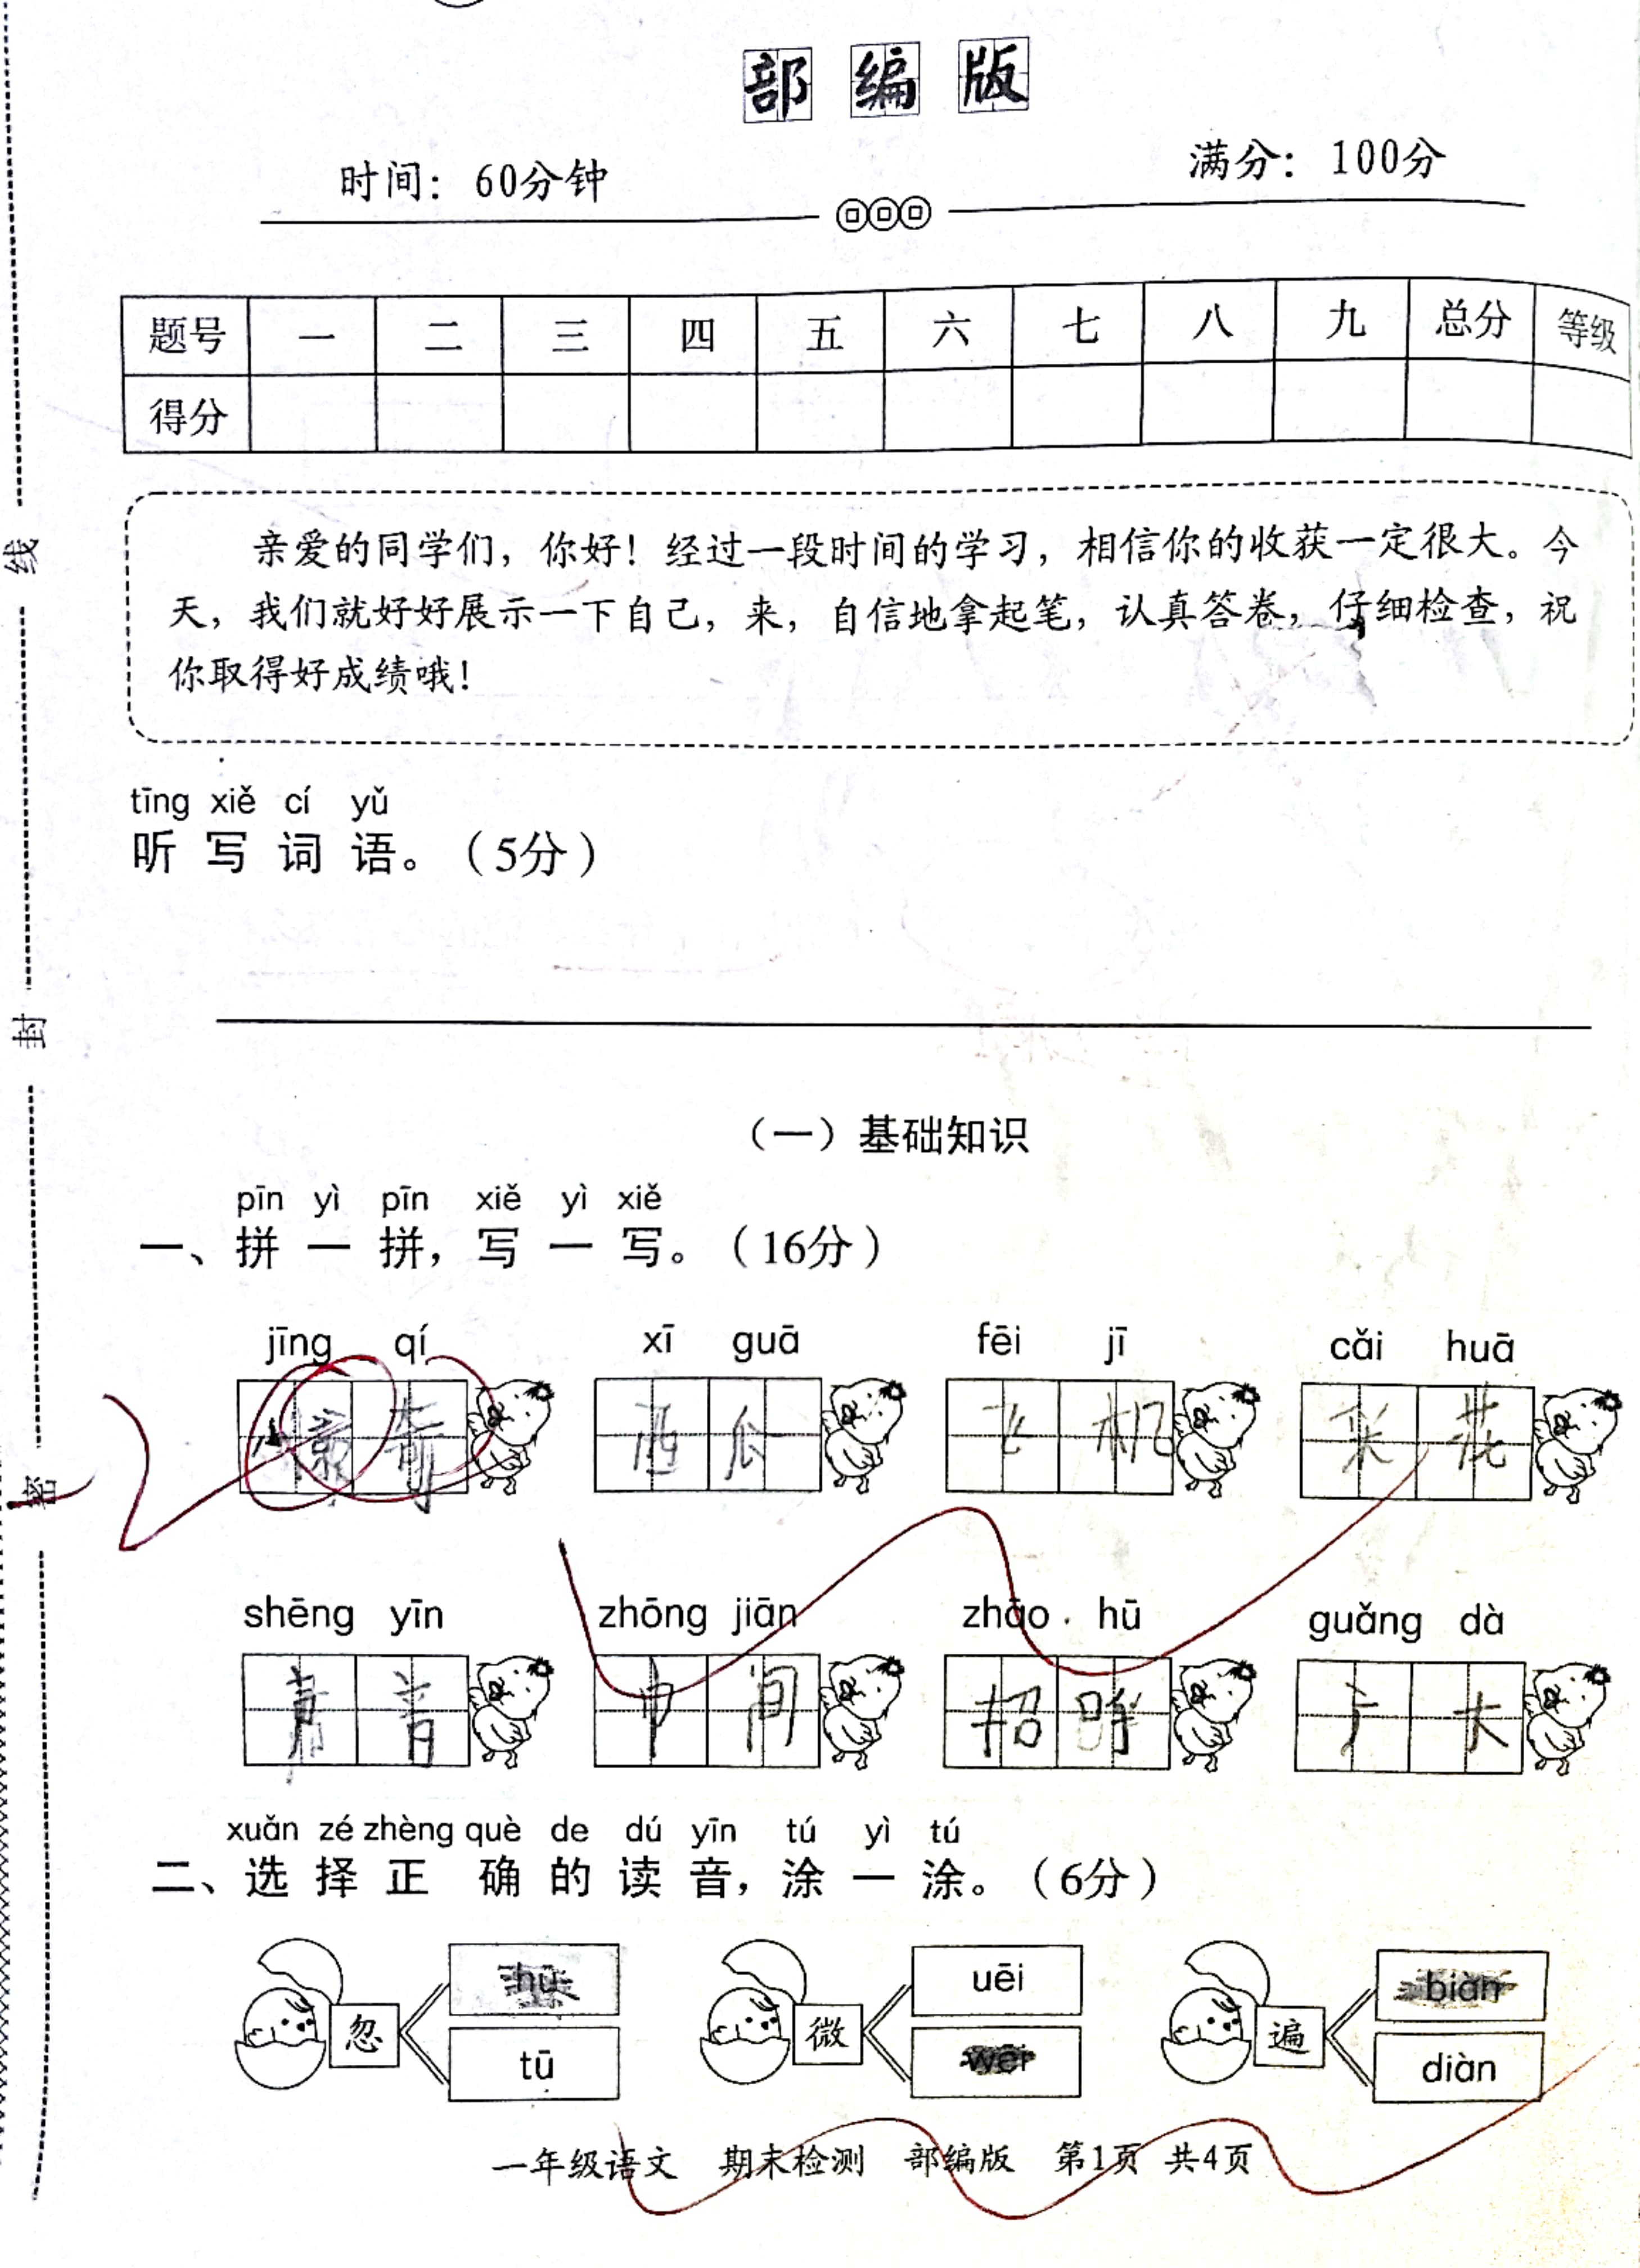 部编版
时间：60分钟 满分：100分
题号 一 二 三 四 五 六 七 八 九 总分 等级
得分
亲爱的同学们，你好！经过一段时间的学习，相信你的收获一定很大。今
天，我们就好好展示一下自己，来，自信地拿起笔，认真答卷，仔细检查，祝
你取得好成绩哦！
线
封
密
tīng xiě cí yǔ
听写词语。（5分）
（一）基础知识
pīn yì pīn xiě yì xiě
一、拼一拼，写一写。（16分）
jīng qí xī guā fēi jī cǎi huā
西瓜 飞机 采花
shēng yīn zhōng jiān zhāo hū guǎng dà
音 中间 招 广大
xuǎn zé zhèng què de dú yīn tú yì tú
二、选择正确的读音，涂一涂。（6分）
hū uēi biàn
忽 微 遍
tū wēi diàn
一年级语文 期末检测 部编版 第1页 共4页